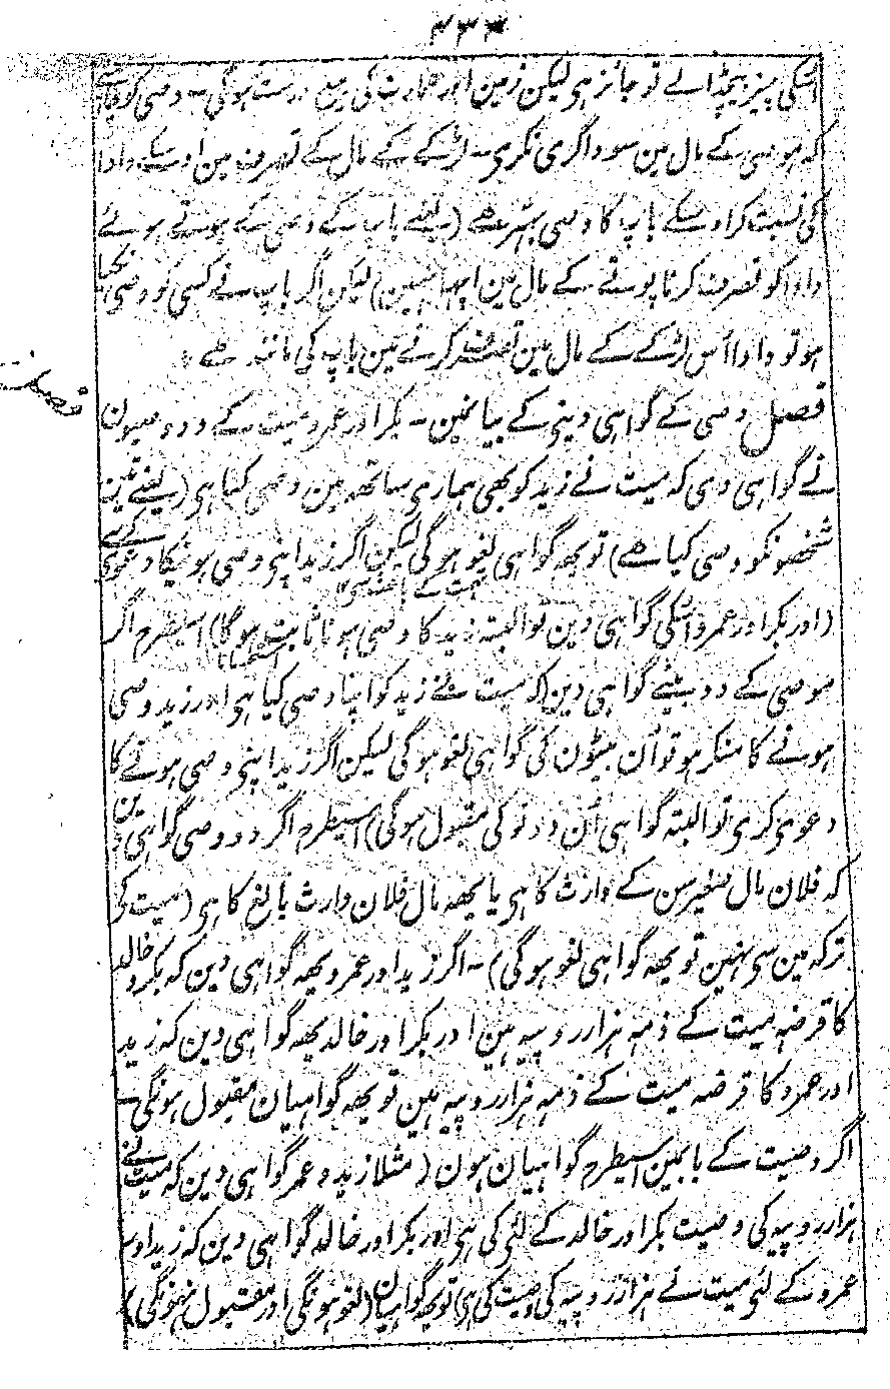 ۴۳۳
اسکی چیز بیچڈالے تو جائز ہی لیکن زمین اور عمارت کی بیع درست ہوگی ۔ وصی کو چاہئے
کہ موصی کے مال مین سوداگری نکری ۔ لڑکے کے مال کے تصرف مین اوسکے دادا
کی نسبت کر اوسکے باپ کا وصی بہتر ھے (یعنے باپ کے وصی کے ہوتے ہوئے
دادا کو تصرف کرنا پوتے کے مال مین اچہا نہین) لیکن اگر باپ نے کسی کو وصی نکیا
ہو تو دادا اُس لڑکے کے مال مین تصرف کرنے مین باپ کی مانند ھے
فصل وصی کے گواہی دینے کے بیانمین ۔ بکر اور عمرو میت کے دو وصیون
نے گواہی دی کہ میت نے زید کو بھی ہماری ساتھہ مین وصی کیا ہی (یعنے تین
شخصونکو وصی کیا ھے) تو یہہ گواہی لغو ہوگی لیکن اگر زید اپنی وصی ہونیکا دعوی کرے
(اور بکر اور عمرو اسکی گواہی دین تو البتہ زید کا وصی ہونا ثابت ہوگا) اسیطرح اگر
موصی کے دو بیٹے گواہی دین کہ میت نے زید کو اپنا وصی کیا ہی اور زید وصی
ہونے کا منکر ہو تو اُن بیٹون کی گواہی لغو ہوگی لیکن اگر زید اپنی وصی ہونے کا
دعوی کری تو البتہ گواہی اُن دونو کی مقبول ہوگی) اسیطرح اگر دو وصی گواہی دین
کہ فلان مال صغیر سن کے وارث کا ہی یا یہہ مال فلان وارث بالغ کا ہی (میت کی
ترکہ مین سی نہین تو یہہ گواہی لغو ہوگی) ۔ اگر زید اور عمرو یہہ گواہی دین کہ بکر و خالد
کا قرضہ میت کے ذمہ ہزار روپیہ ہین اور بکر اور خالد یہہ گواہی دین کہ زید
اور عمرو کا قرضہ میت کے ذمہ ہزار روپیہ ہین تو یہہ گواہیان مقبول ہونگی ۔
اگر وصیت کے بابمین اسیطرح گواہیان ہون (مثلا زید و عمر گواہی دین کہ میت نے
ہزار روپیہ کی وصیت بکر اور خالد کے لئی کی ہی اور بکر اور خالد گواہی دین کہ زید اور
عمرو کے لئی میت نے ہزار روپیہ کی وصیت کی ہی تو یہہ گواہیان (لغو ہونگی اور مقبول نہونگی)